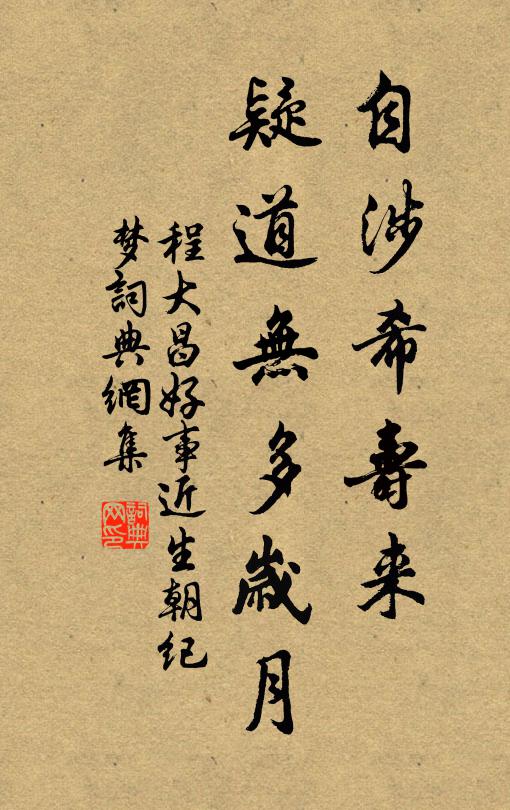 自涉希壽来
疑道無多歲月
程大昌好事近生朝纪
梦詞典網集
詞典
网印